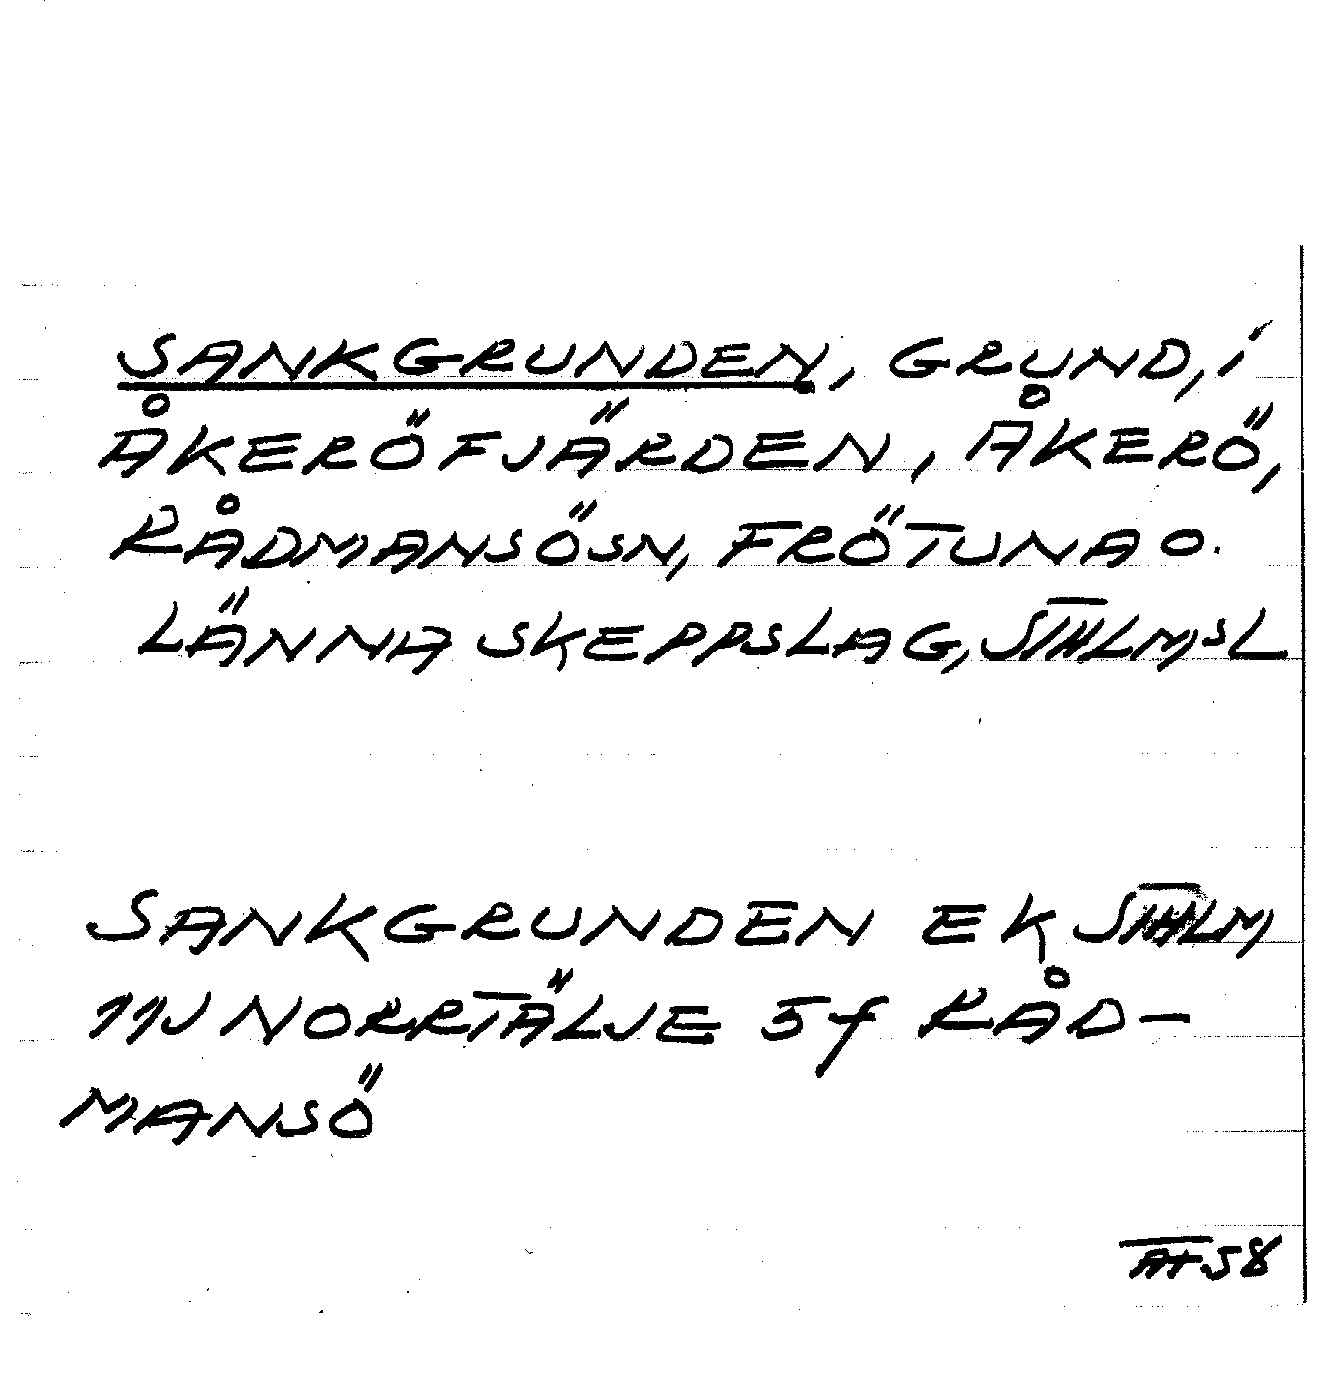 SANKGRUNDEN, GRUND, I
ÅKERÖFJÄRDEN, ÅKERÖ,
RÅDMANSÖSN, FRÖTUNA O.
LÄNNA SKEPPSLAG, STHLMSL
SANKGRUNDEN EK STHLM
11J NORRTÄLJE 5f RÅD-
MANSÖ
58